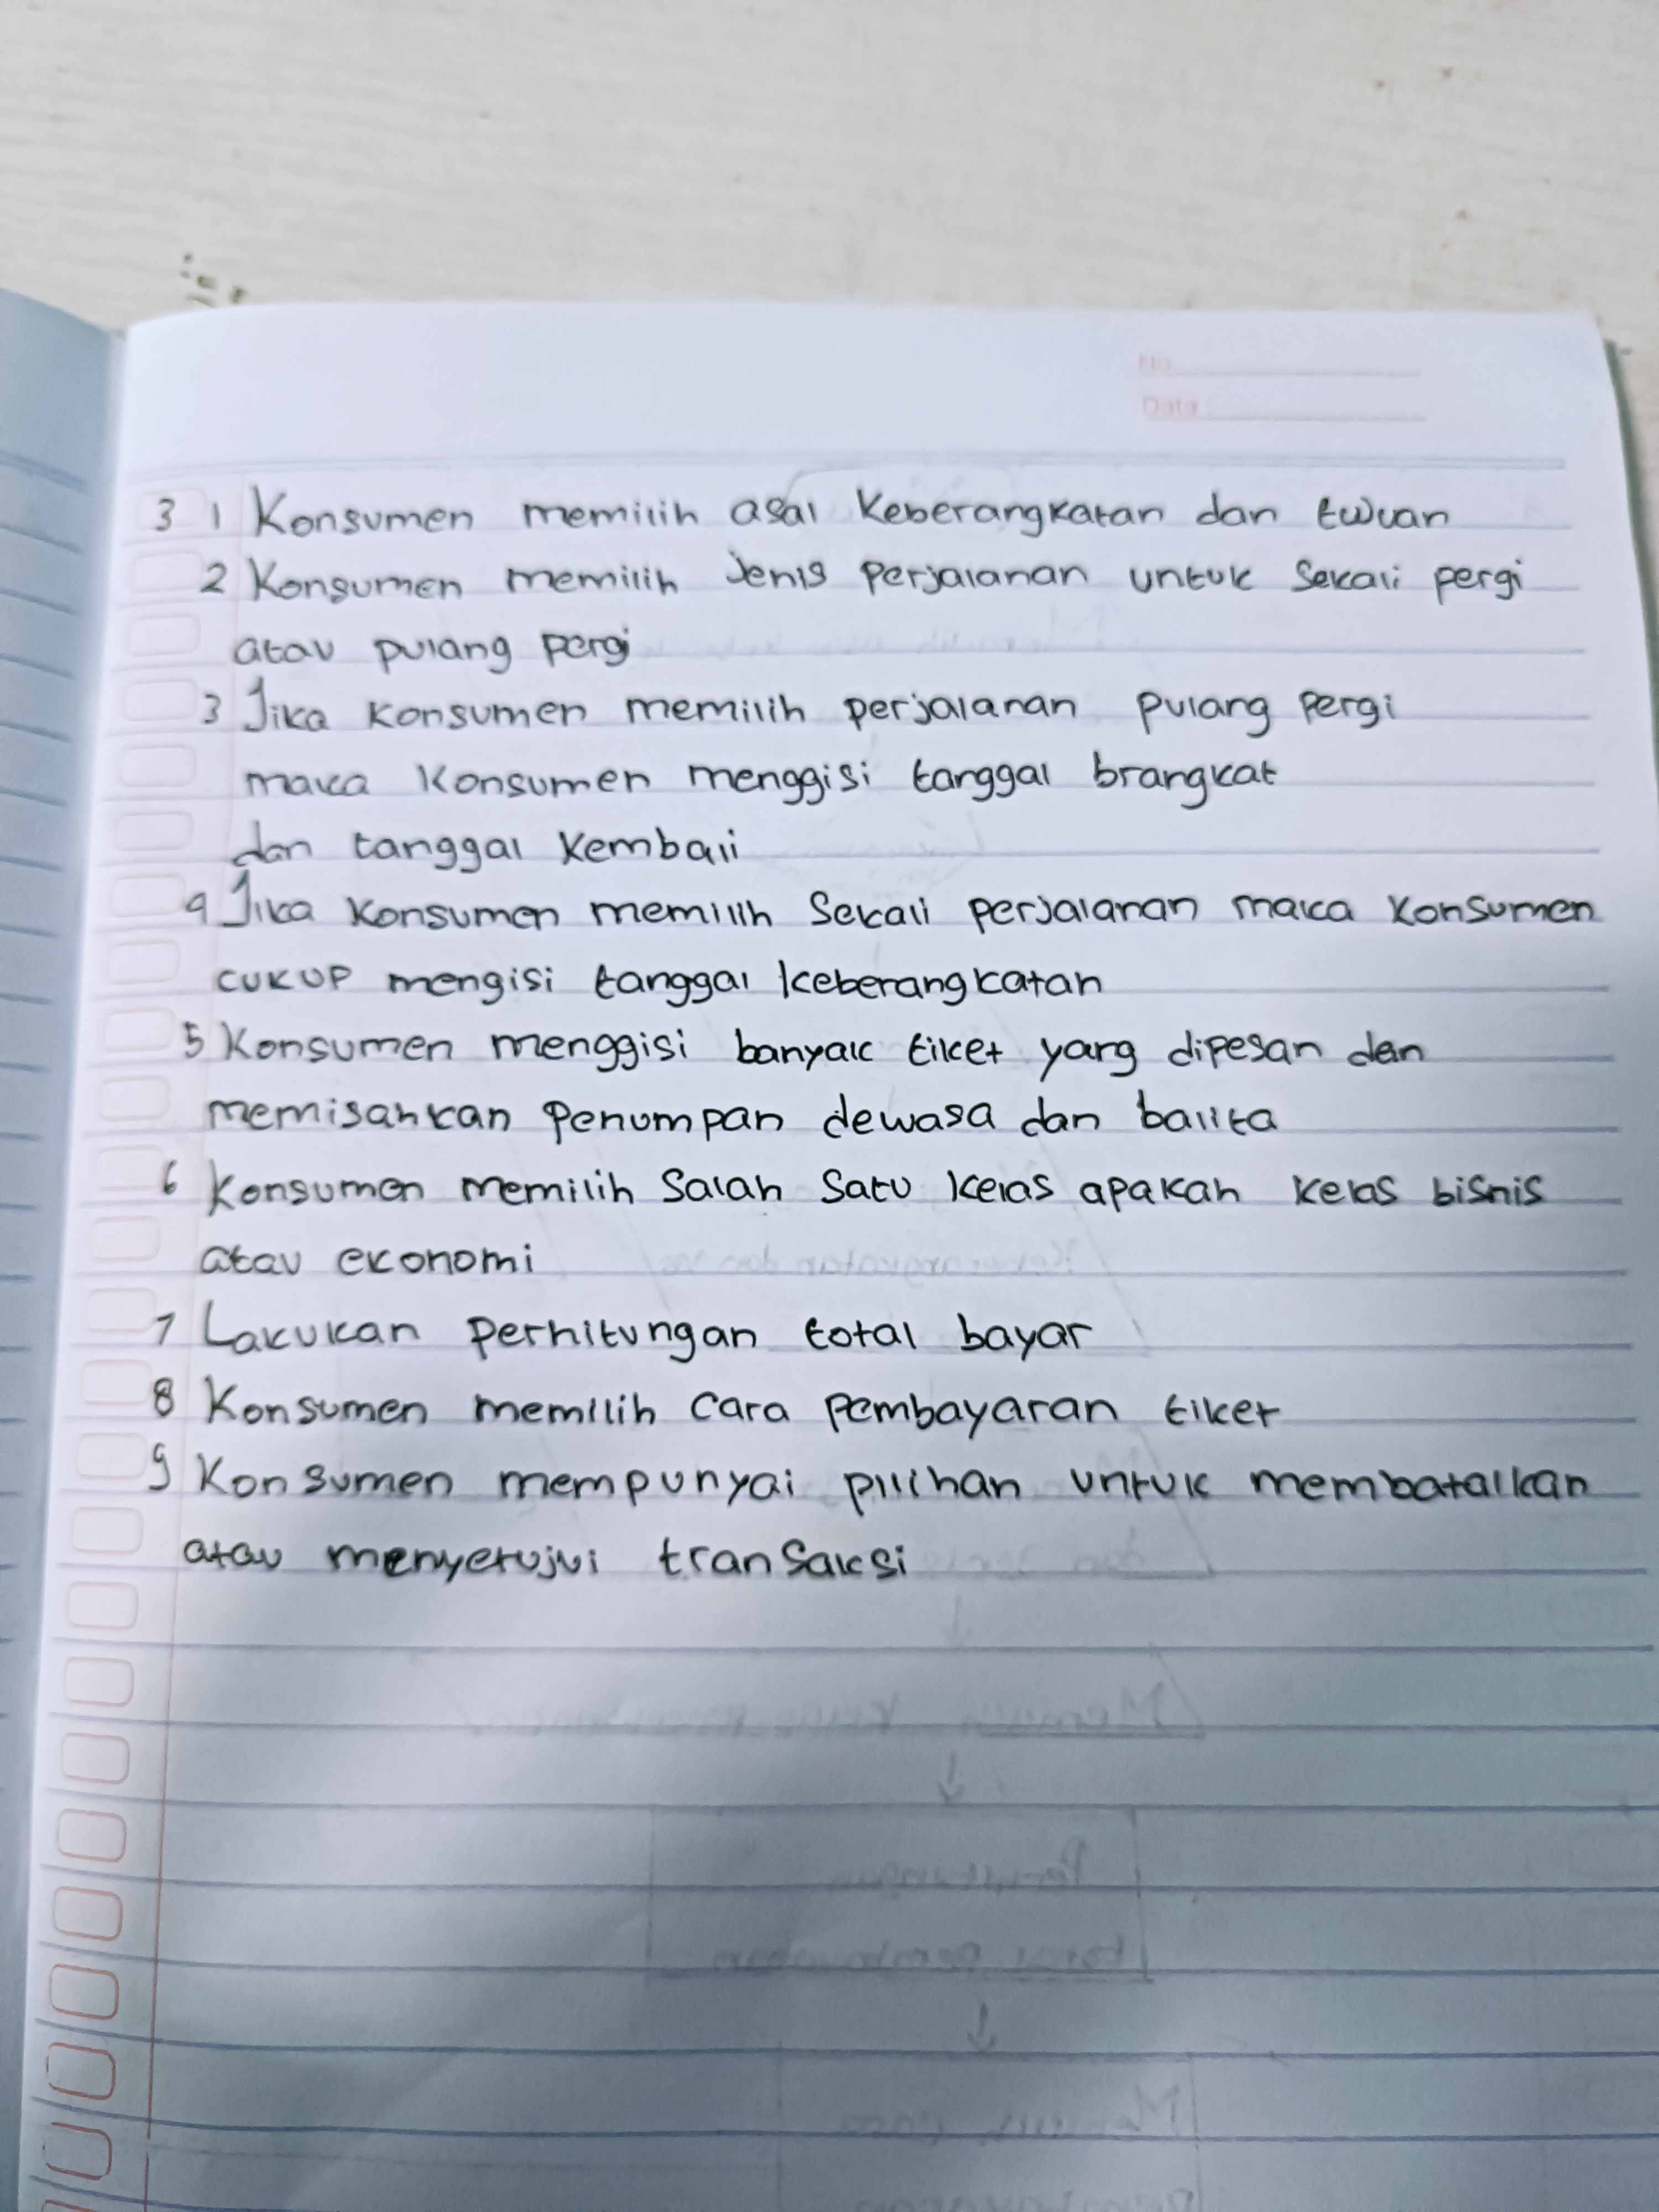 No
Date :
3 1 Konsumen memilih asal Keberangkatan dan tujuan
2 Konsumen memilih Jenis Perjalanan untuk Sekali pergi
atau pulang pergi
3 Jika Konsumen memilih perjalanan pulang pergi
maka Konsumen menggisi tanggal brangkat
dan tanggal Kembali
4 Jika Konsumen memilih Sekali perjalanan maka Konsumen
cukup mengisi tanggal keberangkatan
5 Konsumen menggisi banyak tiket yang dipesan dan
memisahkan Penumpan dewasa dan balita
6 Konsumen memilih Salah Satu kelas apakah kelas bisnis
atau ekonomi
7 Lakukan Perhitungan total bayar
8 Konsumen memilih Cara Pembayaran tiket
9 Konsumen mempunyai pilihan untuk membatalkan
atau menyetujui transaksi